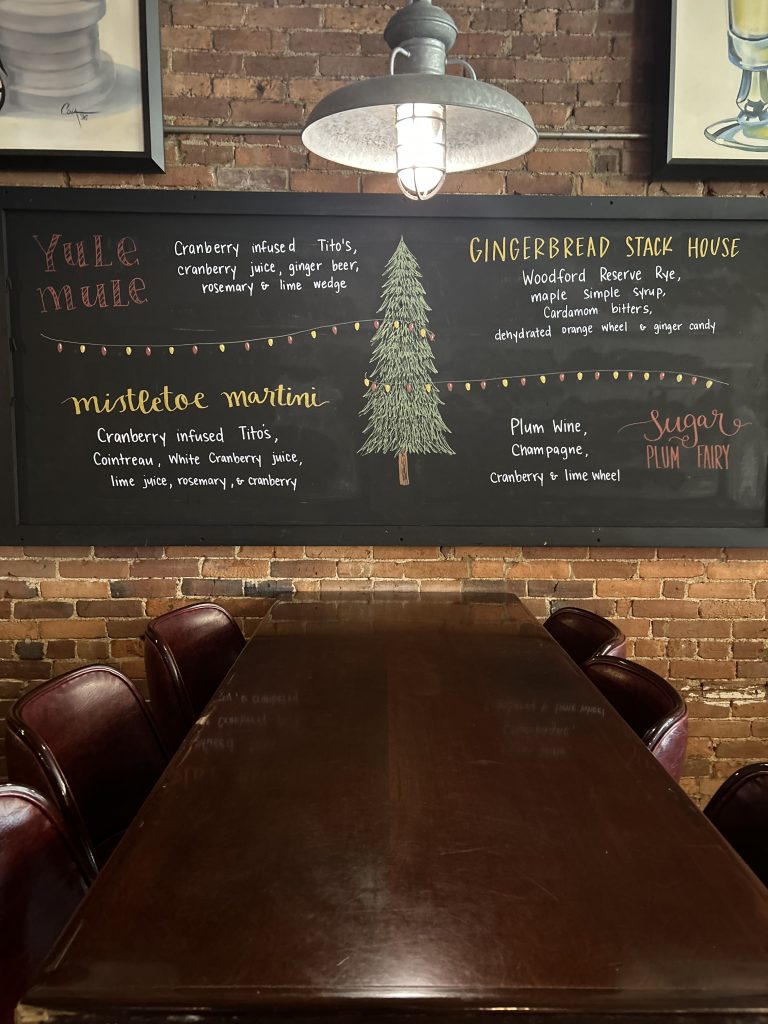 Yule
mule
Cranberry infused Tito's,
cranberry juice, ginger beer,
rosemary & lime wedge
mistletoe martini
Cranberry infused Tito's,
Cointreau, White Cranberry juice,
lime juice, rosemary, & cranberry
GINGERBREAD STACK HOUSE
Woodford Reserve Rye,
maple simple syrup,
Cardamom bitters,
dehydrated orange wheel & ginger candy
sugar
PLUM FAIRY
Plum Wine,
Champagne,
Cranberry & lime wheel